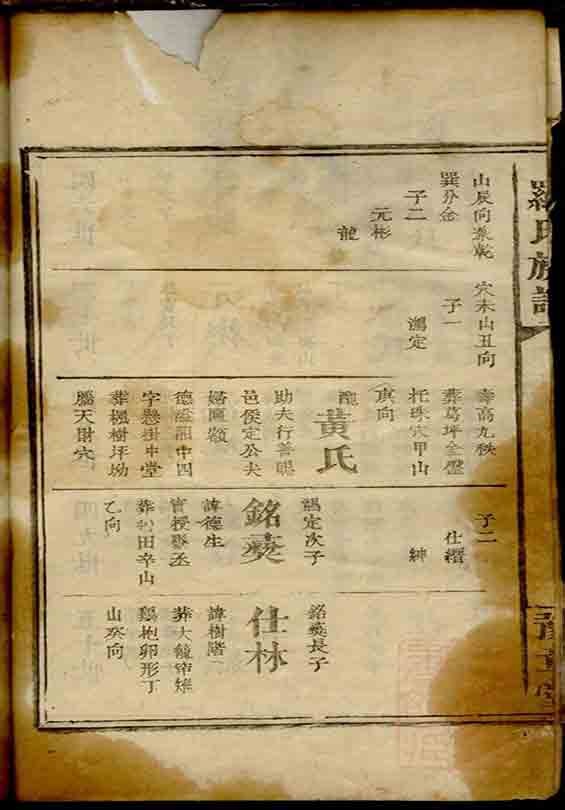 羅氏族譜
山辰向兼乾
巽分金
子二
元彬
龍
穴未山丑向
子一
鴻定
壽高九秩
葬葛坪金盤
托珠穴甲山
庚向
配
黃氏
助夫行善賜
邑侯定公夫
婦匾額
德溢福中四
字懸掛中堂
葬楓樹坪坳
腦天財穴
子二
仕縉
紳
鴻定次子
銘養
諱德生
實授縣丞
葬松田辛山
乙向
銘養長子
仕林
諱樹階
葬大
鷄抱卵形丁
山癸向